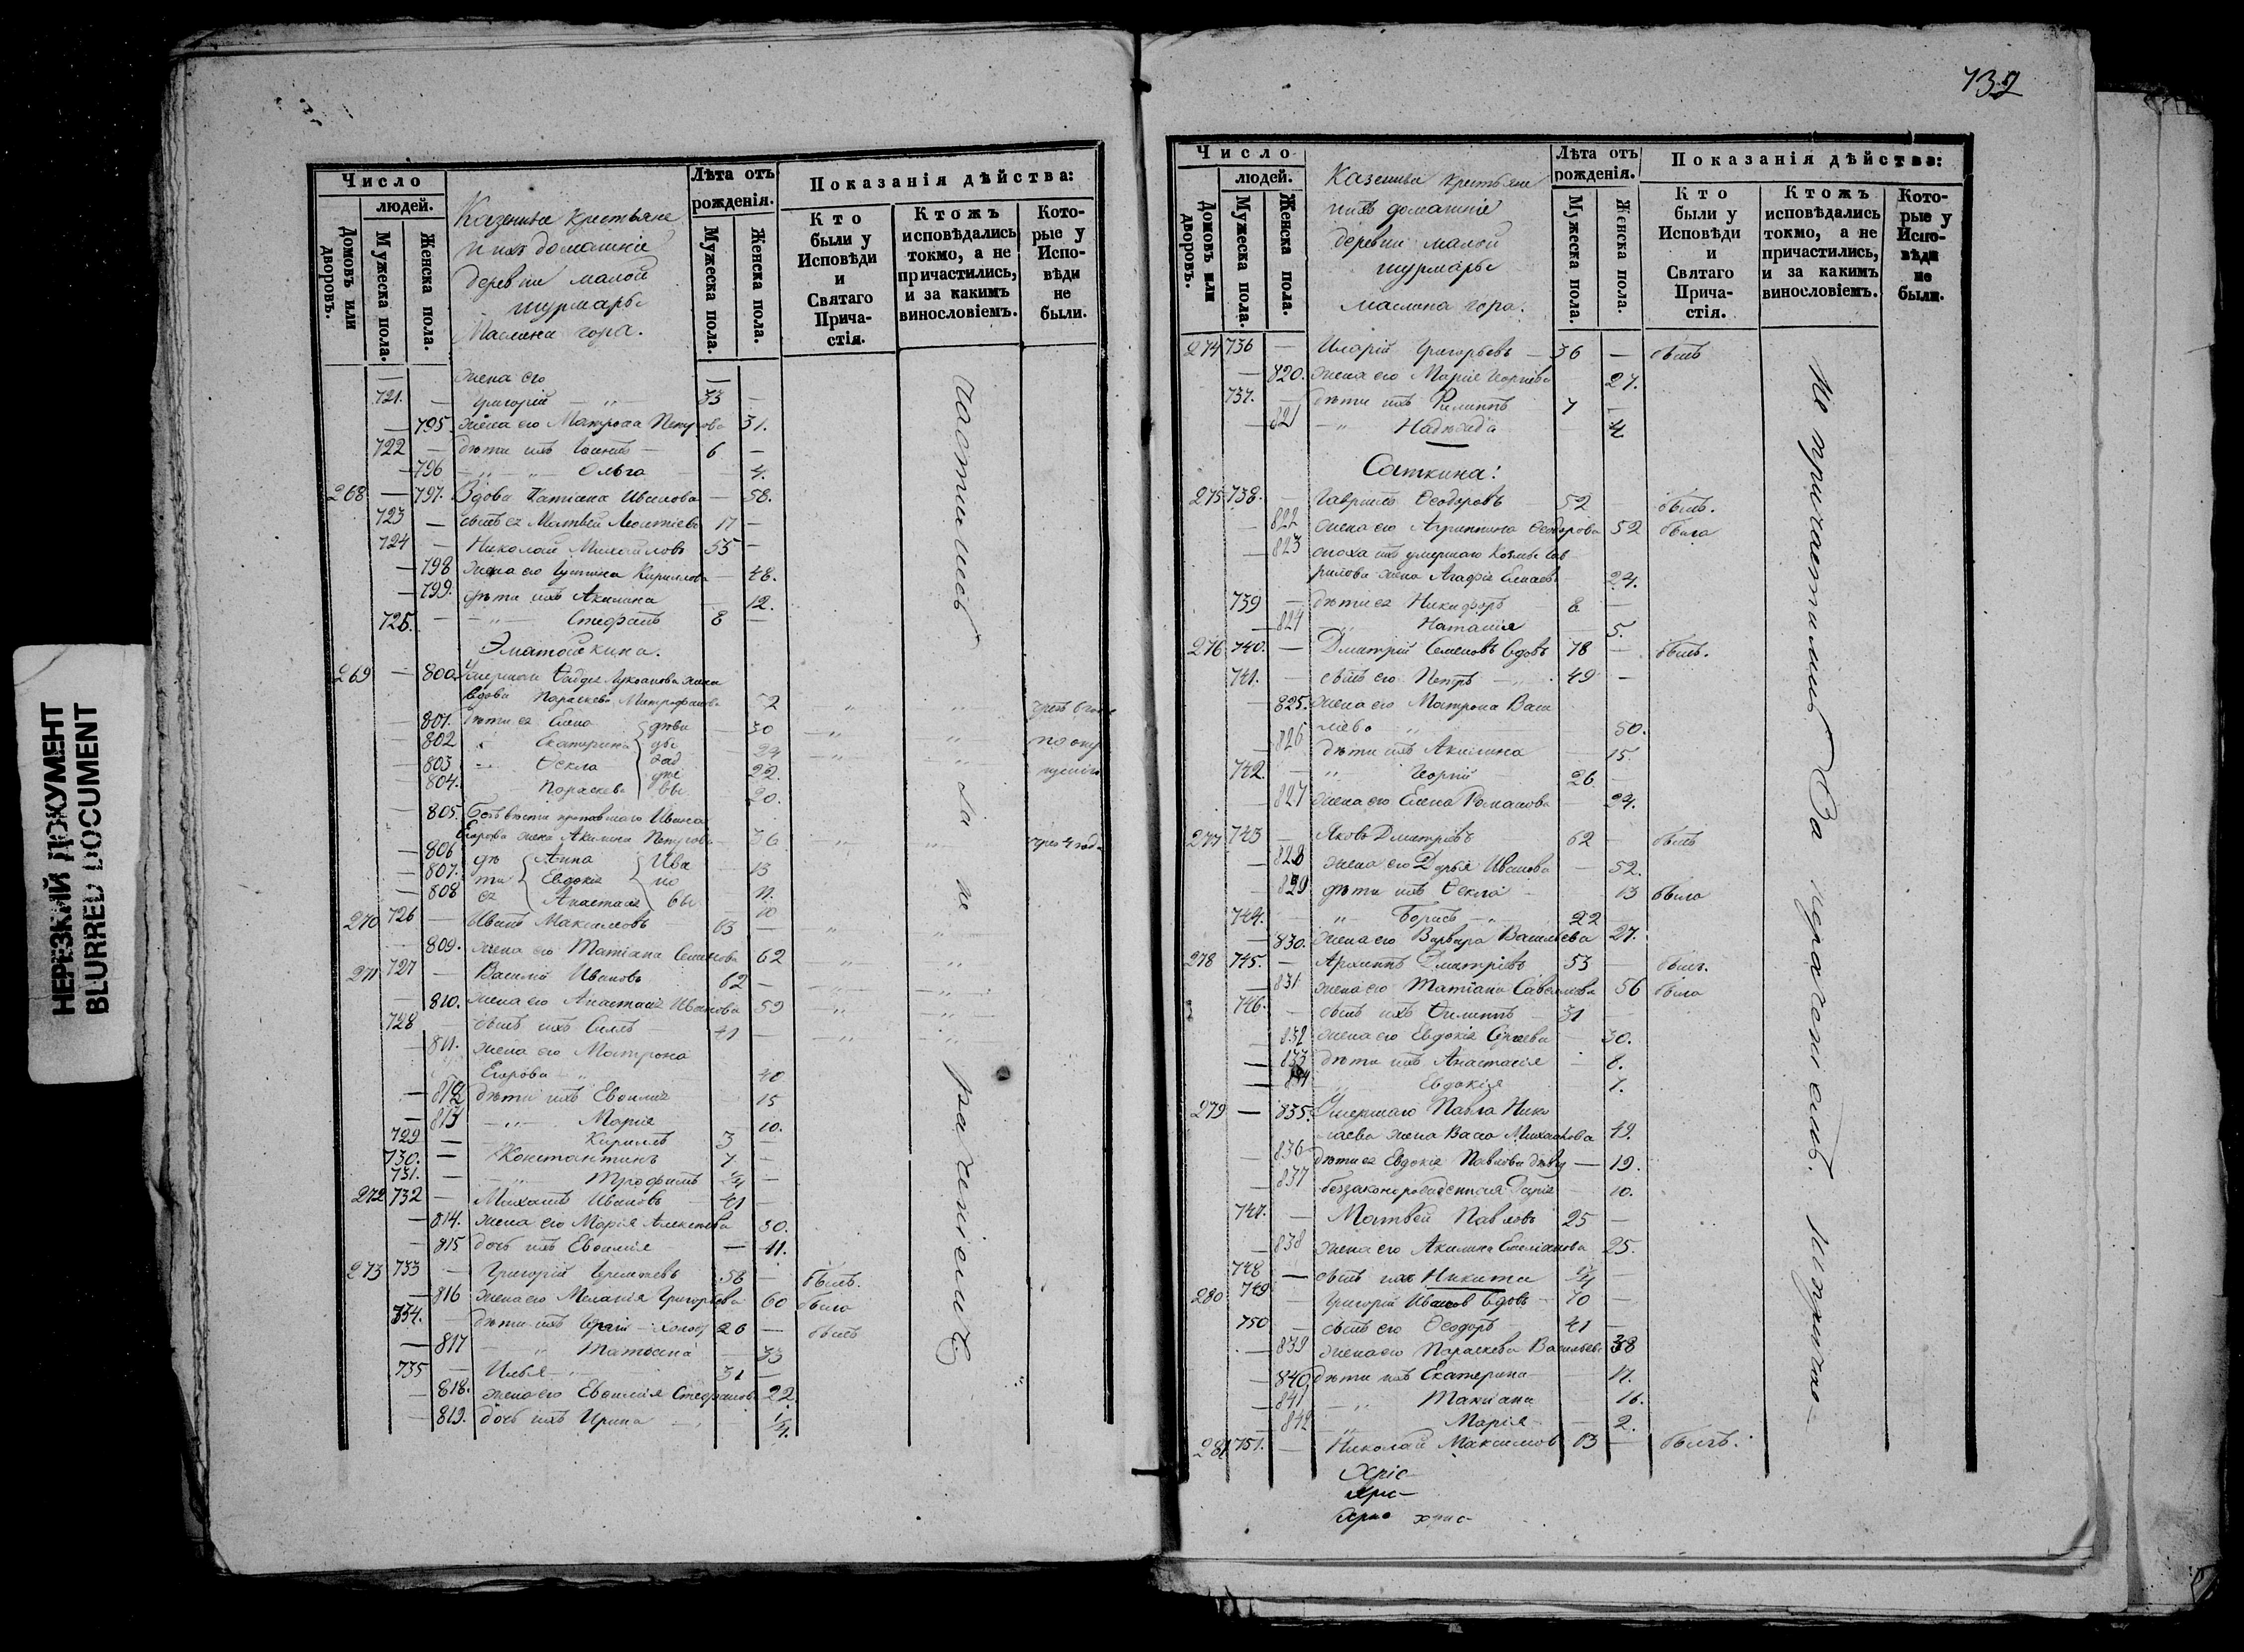 НЕРЕЗКИЙ ДОКУМЕНТ
BLURRED DOCUMENT
Число
людей.
Домовъ или дворовъ.
Мужеска пола.
Женска пола.
Казенные крестьяне
и ихъ домашніе
деревни малой
шурмары
Маслина гора.
Лѣта отъ рожденія.
Мужеска пола.
Женска пола.
Показанія дѣйства:
Кто были у Исповѣди и Святаго Прича-стія.
Ктожъ исповѣдались токмо, а не причастились, и за какимъ винословіемъ.
Кото-рые у Испо-вѣди не были.
жена его
721. — Григорій — „ — 33 —
— 795. жена его Матрона Петрова 31.
722 — дѣти ихъ — 6 —
— 796 — „ — „ Ольга 4.
268 — 797. Вдова Татіана Иванова — 58.
723 — сынъ ея Матвей Леонтіевъ 17 —
724 — Николай Михайловъ 55 —
— 798 жена его Кирилова — 48.
— 799. дѣти ихъ Акилина 12.
725. — — „ Стефанъ 8 —
269 — 800. Умершаго жена
вдова Параскева Митрофанова 52 „ „
— 801. дѣти ея Елена 30 — „
— 802 Екатерина 24 — „
— 803 Ѳекла 22.
— 804. Параскева 20.
— 805. Безъ вѣсти пропавшаго Ивана
Егорова жена Акилина Петрова 36 „ „ чрез 4 года
— 806 дѣ Анна Ива 13
— 807. ти Евдокія но 11.
— 808 ея Анастасія вы 10
270 726 — Иванъ Максимовъ 63 — „ „
— 809. жена его Татіана Семенова 62 — „ „
271 727 — Василій Ивановъ 62 — — „ — „
— 810. жена его Анастасія Иванова 59 — „ — „
728 — сынъ ихъ Силъ 41 — — „
— 811. жена его Матрона
Егорова „ 40
— 812 дѣти ихъ Евѳимія 15
— 813 — „ — Марія 10.
729 — Кирилъ 3 —
730. — Константинъ 7 —
731. — „ Трофимъ 2/4 —
272 732 — Михаилъ Ивановъ 41 —
— 814. жена его Марія Алексѣева 30.
— 815 дочь ихъ Евѳимія — 11.
273 733 — Григорій 58 — былъ.
— 816 жена его Меланія Григорьева 60 была
734. — дѣти ихъ — холос 26 — былъ
— 817 — „ Татьяна 33
735 — Илья — „ — 31 —
— 818. жена его Евѳимія Стефанова 22.
— 819. дочь ихъ Ирина — „ — 1/4.
частились За не
раченіемъ
132
Число
людей.
Домовъ или дворовъ.
Мужеска пола.
Женска пола.
Казенные крестьяне
и ихъ домашніе
деревни малой
шурмары
маслина гора.
Лѣта отъ рожденія.
Мужеска пола.
Женска пола.
Показанія дѣйства:
Кто были у Исповѣди и Святаго Прича-стія.
Ктожъ исповѣдались токмо, а не причастились, и за какимъ винословіемъ.
Кото-рые у Испо-вѣди не были.
274 736 — Иларій Григорьевъ — 36 — былъ
— 820. жена его Марія Георгіева 27.
737. — дѣти ихъ Филиппъ 7 —
— 821 — „ Надежда 4
Саткина:
275 738. — Гаврилъ Ѳеодоровъ 52 — былъ.
— 822 жена его Агриппина Ѳеодорова 52 была
— 823 сноха ихъ умершаго Козьмы Гав
рилова жена Агафія 24.
739 — дѣти ея Никифоръ 8 —
— 824 Наталія 5.
276 740. — Дмитрій Семеновъ вдовъ 78 — былъ.
741. — сынъ его Петръ — „ 49 —
— 825. жена его Матрона Васи
льева „ 50.
— 826 дѣти ихъ Акилина 15.
742. — „ Георгій 26 —
— 827 жена его Елена Романова 24.
277 743 — Яковъ Дмитріевъ 62 — былъ
— 828 жена его Дарья Иванова — 52.
— 829 дѣти ихъ Ѳекла 13 была
744. — „ Борисъ — „ 22 —
— 830. жена его Варвара Васильева 27.
278 745. — Архиппъ Дмитріевъ 53 — былъ.
— 831 жена его Татіана Савельева 56 была
746. — сынъ ихъ Филиппъ — 31 —
— 832 жена его Евдокія Сергѣева 30.
— 833 дѣти ихъ Анастасія 8.
— 834 „ Евдокія 7.
279 — 835. Умершаго Павла Нико
лаева жена Васса Михайлова 49.
— 836 дѣти ея Евдокія Павлова дѣвц — 19.
— 837 беззаконорожденная 10.
747. — Матвей Павловъ 25 —
— 838 жена его Акилина Емеліанова 25.
748 — сынъ ихъ Никита 1/4 —
280 749 — Григорій Ивановъ вдовъ 70 —
750 — сынъ его Ѳеодоръ 41 —
— 839 жена его Параскева Васильева 38
— 840. дѣти ихъ Екатерина 17.
— 841 — „ Татіана 16.
— 842 — „ Марія 2.
281 751. — Николай Максимовъ 63 — былъ.
Не причастились За нераченіемъ. Непричас—
Хріс—
Хрис—
Хрис хрис—